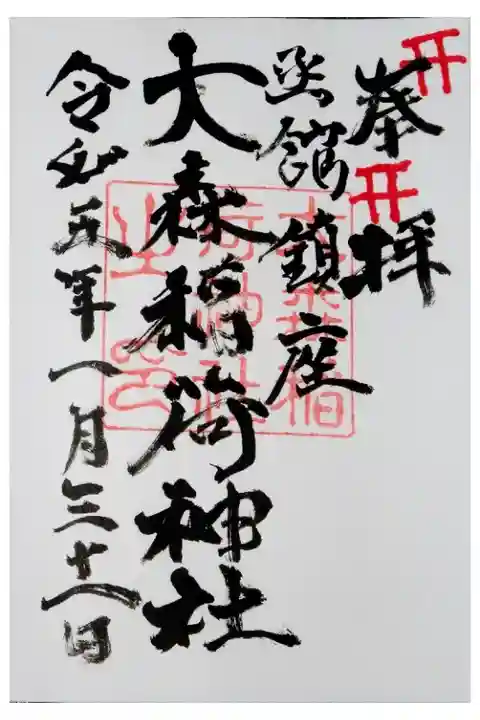 奉拝
函館鎮座
大森稲荷神社
令和五年一月三十一日
大森稲
荷神社
之印